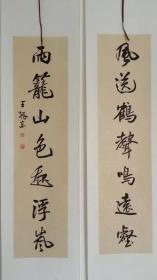 風送鶴聲鳴遠壑
雨籠山色起浮嵐